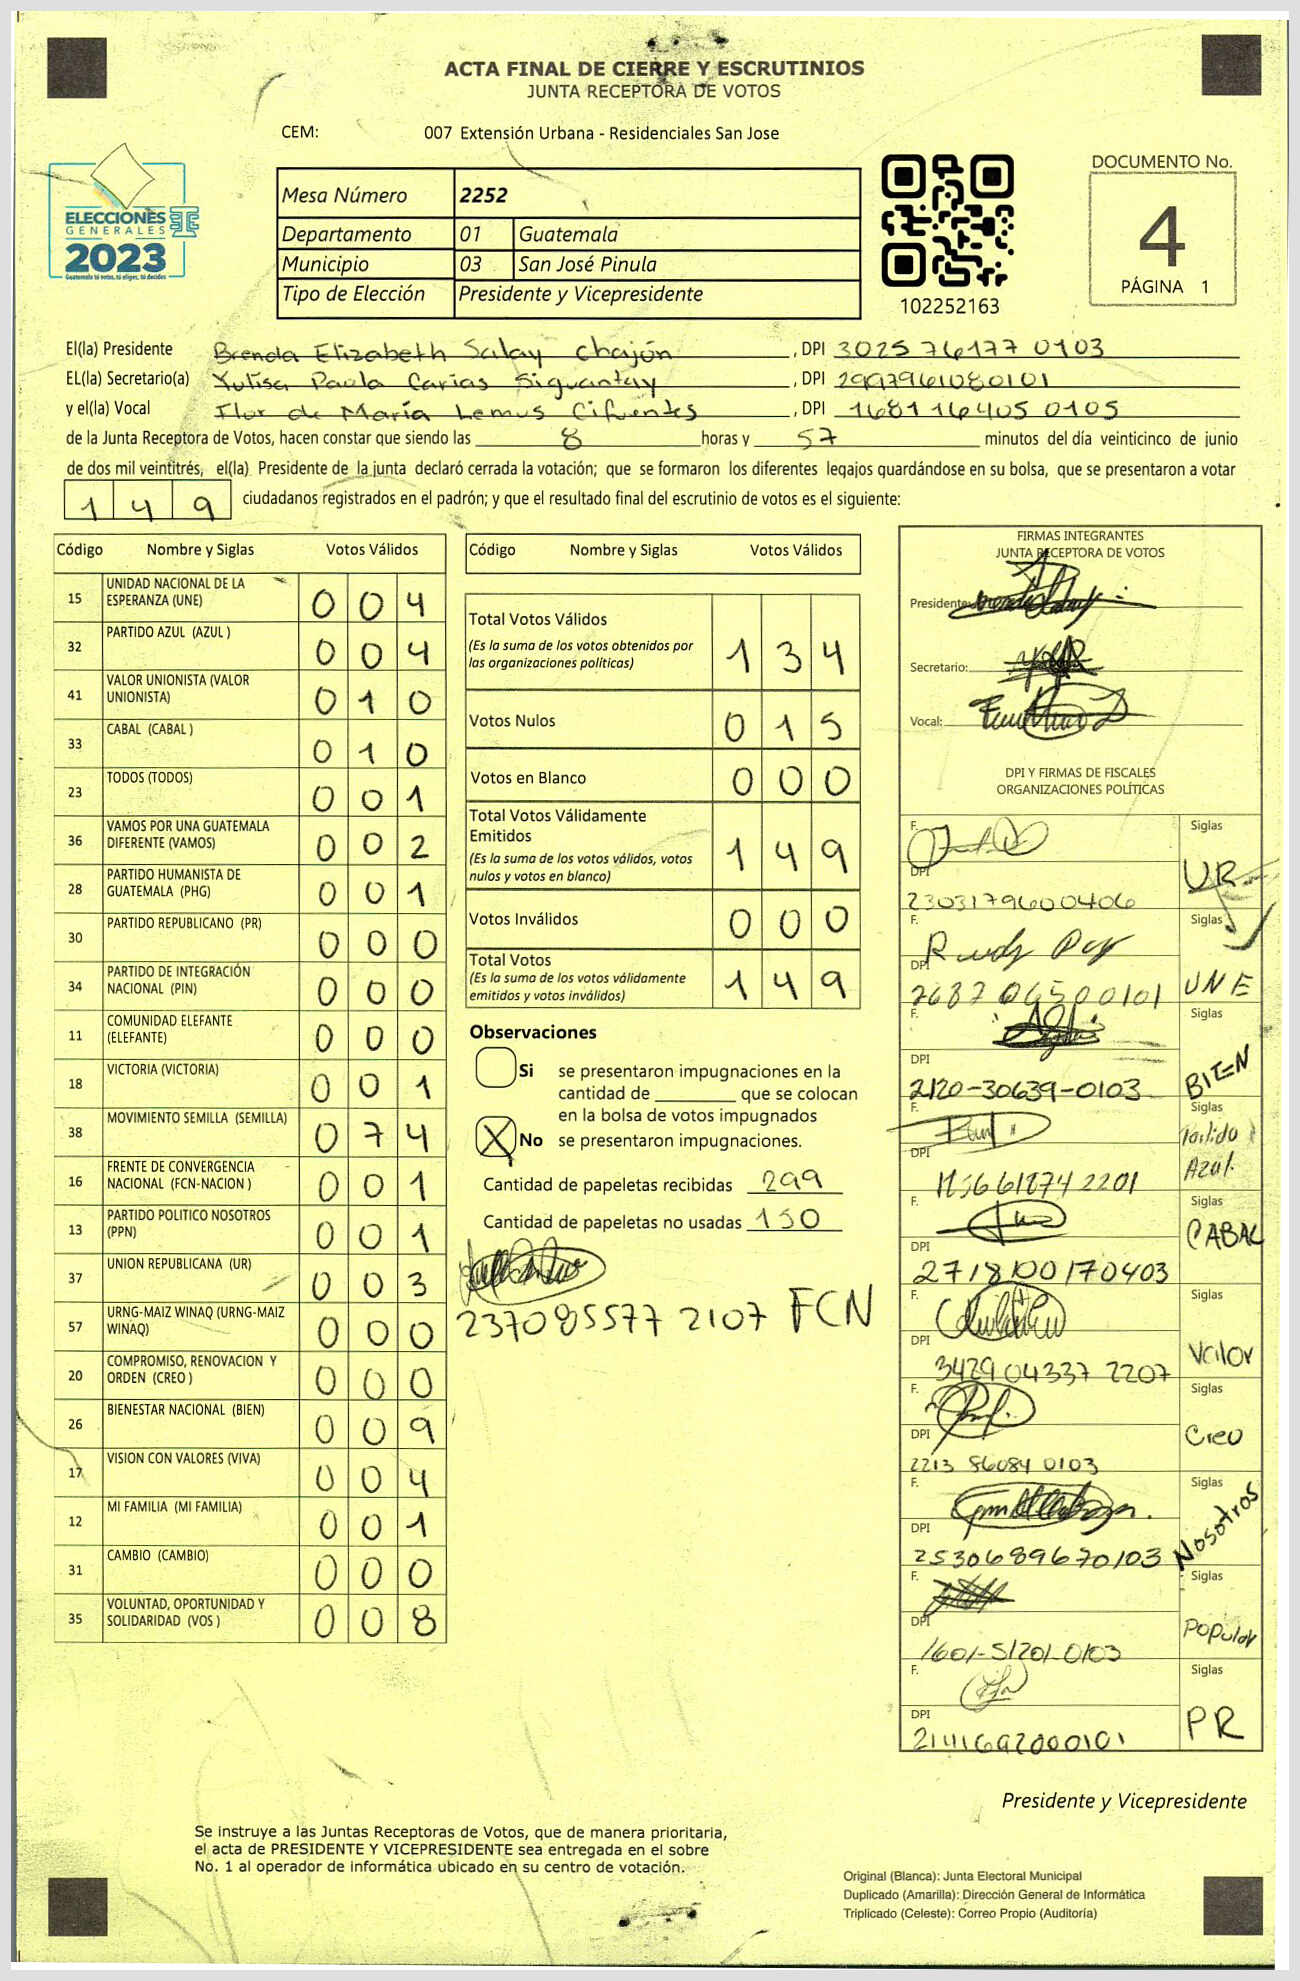 ACTA FINAL DE CIERRE Y ESCRUTINIOS
JUNTA RECEPTORA DE VOTOS
CEM: 007 Extensión Urbana - Residenciales San Jose
ELECCIONES
GENERALES
2023
Guatemala tú votas, tú eliges, tú decides
Mesa Número 2252
Departamento 01 Guatemala
Municipio 03 San José Pinula
Tipo de Elección Presidente y Vicepresidente
102252163
DOCUMENTO No.
4
PÁGINA 1
El(la) Presidente Brenda Elizabeth Salay Chajón , DPI 3025 76177 0103
EL(la) Secretario(a) Yulisa Paola Carias Siguantay , DPI 2997961080101
y el(la) Vocal Flor de María Lemus Cifuentes , DPI 1681 16405 0105
de la Junta Receptora de Votos, hacen constar que siendo las 8 horas y 57 minutos del día veinticinco de junio
de dos mil veintitrés, el(la) Presidente de la junta declaró cerrada la votación; que se formaron los diferentes legajos guardándose en su bolsa, que se presentaron a votar
149 ciudadanos registrados en el padrón; y que el resultado final del escrutinio de votos es el siguiente:
Código Nombre y Siglas Votos Válidos
15 UNIDAD NACIONAL DE LA ESPERANZA (UNE) 0 0 4
32 PARTIDO AZUL (AZUL ) 0 0 4
41 VALOR UNIONISTA (VALOR UNIONISTA) 0 1 0
33 CABAL (CABAL ) 0 1 0
23 TODOS (TODOS) 0 0 1
36 VAMOS POR UNA GUATEMALA DIFERENTE (VAMOS) 0 0 2
28 PARTIDO HUMANISTA DE GUATEMALA (PHG) 0 0 1
30 PARTIDO REPUBLICANO (PR) 0 0 0
34 PARTIDO DE INTEGRACIÓN NACIONAL (PIN) 0 0 0
11 COMUNIDAD ELEFANTE (ELEFANTE) 0 0 0
18 VICTORIA (VICTORIA) 0 0 1
38 MOVIMIENTO SEMILLA (SEMILLA) 0 7 4
16 FRENTE DE CONVERGENCIA NACIONAL (FCN-NACION ) 0 0 1
13 PARTIDO POLITICO NOSOTROS (PPN) 0 0 1
37 UNION REPUBLICANA (UR) 0 0 3
57 URNG-MAIZ WINAQ (URNG-MAIZ WINAQ) 0 0 0
20 COMPROMISO, RENOVACION Y ORDEN (CREO ) 0 0 0
26 BIENESTAR NACIONAL (BIEN) 0 0 9
17 VISION CON VALORES (VIVA) 0 0 4
12 MI FAMILIA (MI FAMILIA) 0 0 1
31 CAMBIO (CAMBIO) 0 0 0
35 VOLUNTAD, OPORTUNIDAD Y SOLIDARIDAD (VOS ) 0 0 8
Código Nombre y Siglas Votos Válidos
Total Votos Válidos 1 3 4
(Es la suma de los votos obtenidos por
las organizaciones políticas)
Votos Nulos 0 1 5
Votos en Blanco 0 0 0
Total Votos Válidamente
Emitidos 1 4 9
(Es la suma de los votos válidos, votos
nulos y votos en blanco)
Votos Inválidos 0 0 0
Total Votos 1 4 9
(Es la suma de los votos válidamente
emitidos y votos inválidos)
Observaciones
Si se presentaron impugnaciones en la
cantidad de ________ que se colocan
en la bolsa de votos impugnados
X No se presentaron impugnaciones.
Cantidad de papeletas recibidas 299
Cantidad de papeletas no usadas 150
237085577 2107 FCN
FIRMAS INTEGRANTES
JUNTA RECEPTORA DE VOTOS
Presidente:
Secretario:
Vocal:
DPI Y FIRMAS DE FISCALES
ORGANIZACIONES POLÍTICAS
F. Siglas
DPI UR
2303179600406
F. Siglas
DPI UNE
2687 06500101
F. Siglas
DPI BIEN
2120-30639-0103
F. Siglas
DPI Partido Azul
61874 2201
F. Siglas
DPI CABAL
2718100170403
F. Siglas
DPI Valor
3429 04337 2207
F. Siglas
DPI Creo
2213 86084 0103
F. Siglas
DPI Nosotros
2530689670103
F. Siglas
DPI Popular
1601-51201-0103
F. Siglas
DPI PR
2141692000101
Presidente y Vicepresidente
Se instruye a las Juntas Receptoras de Votos, que de manera prioritaria,
el acta de PRESIDENTE Y VICEPRESIDENTE sea entregada en el sobre
No. 1 al operador de informática ubicado en su centro de votación.
Original (Blanca): Junta Electoral Municipal
Duplicado (Amarilla): Dirección General de Informática
Triplicado (Celeste): Correo Propio (Auditoría)